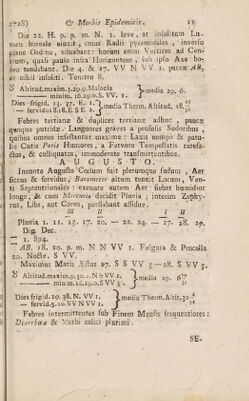 1718) & Morbis Epidemicis. 11
Die 22. H. 9. p. m. N. 1. leve, at insolitum Lu-
men boreale ajunt, cujus Radii pyramidales, inverso
plane Ordine, vibabant: horum enim Vertices ad Cen-
trum, quasi paulo infra Horizontem, sub ipso Axe bo-
reo tendebant. Die 4. & 27. VV N VV 1. parvæ AB,
at nihil insoliti. Tonuim 8.
Altitud. maxim. 3. 29.9. Malacia
minim. 16. 29.0. S. VV. 1. media 29. 6.
Dies frigid. 23. 37. E. 1.
servidus 8.18. S E 2. media Therm. Altitud. 18.
Febres tertianæ & duplices tertianæ adhuc, paucæ
quoque putridæ. Languores graves a profusis Sudoribus,
quibus omnes infestantur male: Laxis nempe & patu-
lis Cutis Poris Humores, a Fervore Tempestatis rarefa-
ctus, & colliquatos, immoderate transmittentibus.
AUGUSTO.
Ineunte Augusto Cœlum fait plerumque sudum, Aer
siccus & fervidus, Barometer altum tenuit Locum, Ven-
ti Septentrionales: exeunte autem Aer subat humidior
longe, & cum Mercurio decidit Pluvia; interim Zephy-
rus, Libs, aut Cores, persæbant assidue.
III II I
Pluvia 1. 11. 13. 17. 20. — 22. 24. — 27. 28. 29.
Dig. Dec.
— 1. 894.
AB. 18. 20. 9. m. N N VV 1. Fulgura & Procella
20. Nocte. S VV.
Maximus Maris Æstus 27. S S VV 3 — 28. S VV 3.
Altitud. maxim. 9.30.1. N b VV 1.
minim. 16.29.0. S VV 3. media 29. 6
Dies frigid. 29. 38. N. VV 1.
servid. 5.10. VV N VV 1. media Therm. Altit. 30
Febres intermittentes sub Finem Mensis frequentiores:
Diarrhœæ & Morbi colici plurimi.
SE.